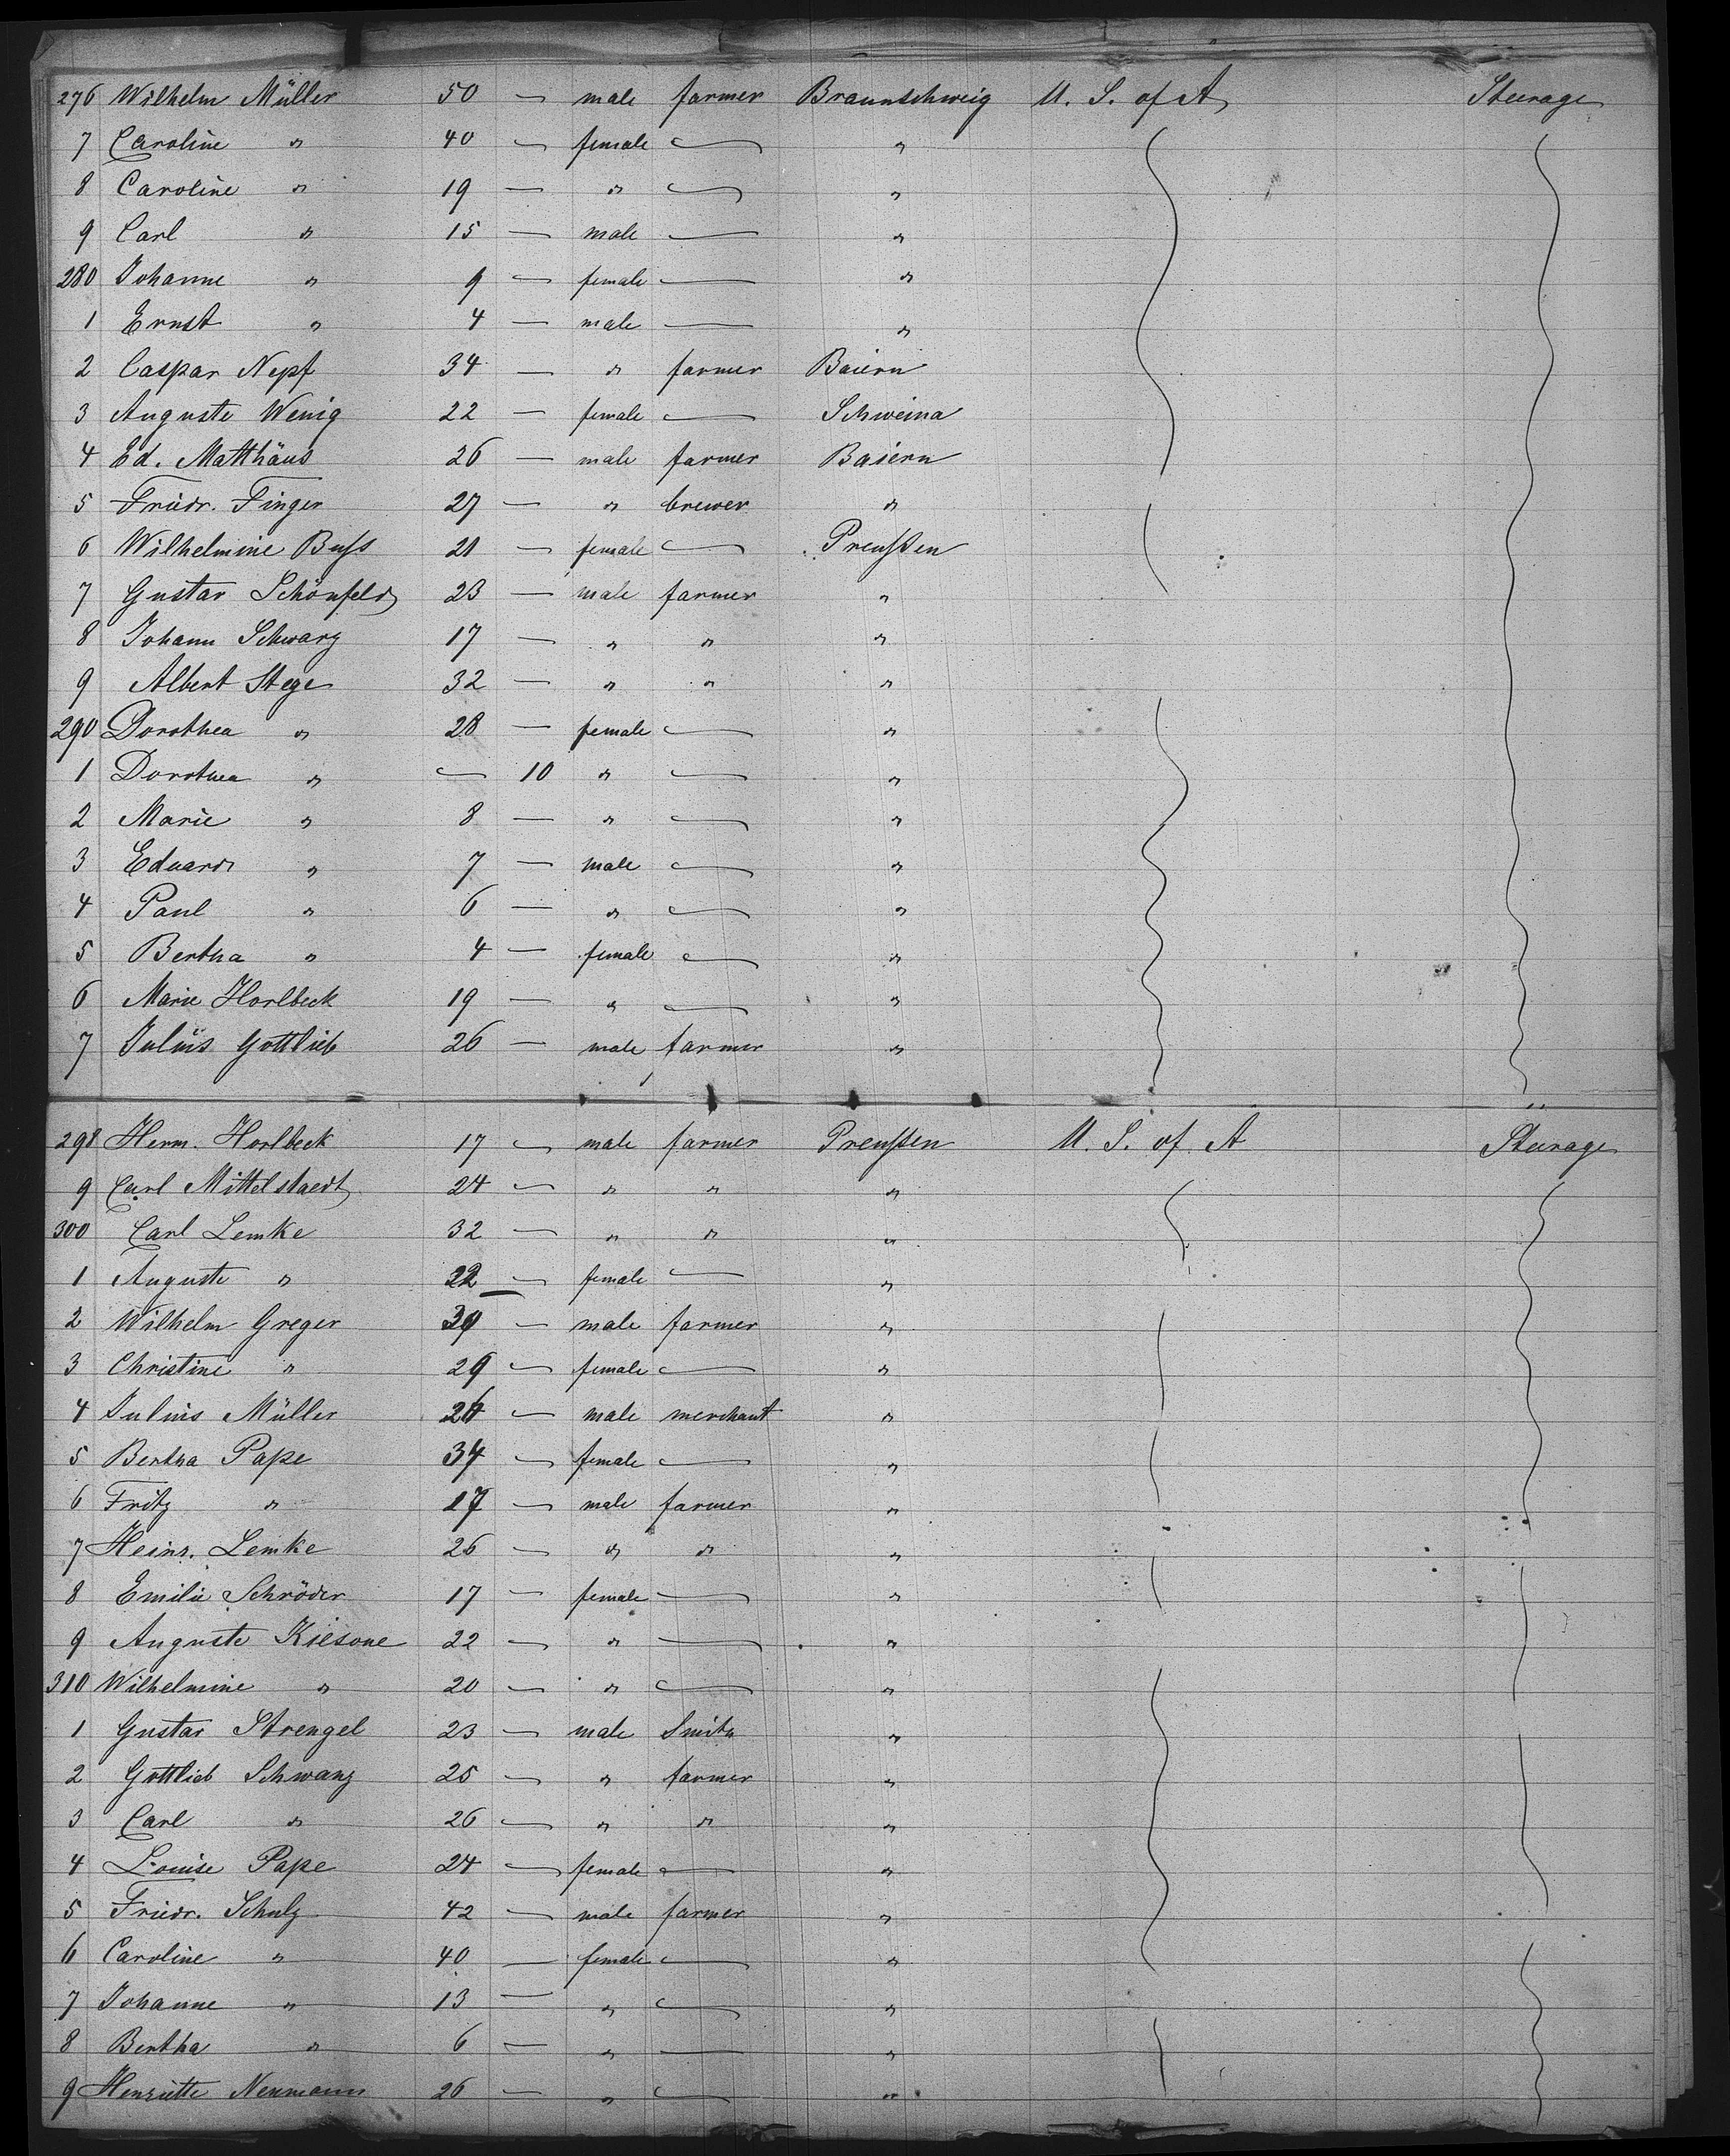 276 Wilhelm Müller 50 — male farmer Braunschweig U. S. of A Steerage
7 Caroline " 40 — female — "
8 Caroline " 19 — " — "
9 Carl " 15 — male — "
280 Johanne " 9 — female — "
1 Ernst " 4 — male — "
2 Caspar Nepf 34 — " farmer Baiern
3 Auguste Wenig 22 — female — Schweina
4 Ed. Matthäus 26 — male farmer Baiern
5 Friedr. Finger 27 — " brewer "
6 Wilhelmine Buſs 21 — female — Preuſsen
7 Gustav Schönfeld 23 — male farmer "
8 Johann Schwarz 17 — " " "
9 Albert Stege 32 — " " "
290 Dorothea " 28 — female — "
1 Dorothea " — 10 " — "
2 Marie " 8 — " — "
3 Eduard " 7 — male — "
4 Paul " 6 — " — "
5 Bertha " 4 — female — "
6 Marie Horlbeck 19 — " — "
7 Julius Gottlieb 26 — male farmer "
298 Herm. Horlbeck 17 — male farmer Preuſsen U. S. of A Steerage
9 Carl Mittelstaedt 24 — " " "
300 Carl Lemke 32 — " " "
1 Auguste " 22 — female — "
2 Wilhelm Greger — male farmer "
3 Christine " 29 — female — "
4 Julius Müller — male merchant "
5 Bertha Pape 34 — female — "
6 Fritz " 17 — male farmer "
7 Heinr. Lemke 26 — " " "
8 Emilie Schröder 17 — female — "
9 Auguste Kiesone 22 — " — "
310 Wilhelmine " 20 — " — "
1 Gustav Strengel 23 — male Smith "
2 Gottlieb Schwanz 25 — " farmer "
3 Carl " 26 — " " "
4 Louise Pape 24 — female — "
5 Friedr. Schulz 42 — male farmer "
6 Caroline " 40 — female — "
7 Johanne " 13 — " — "
8 Bertha " 6 — " — "
9 Henriette Neumann 26 — " — "